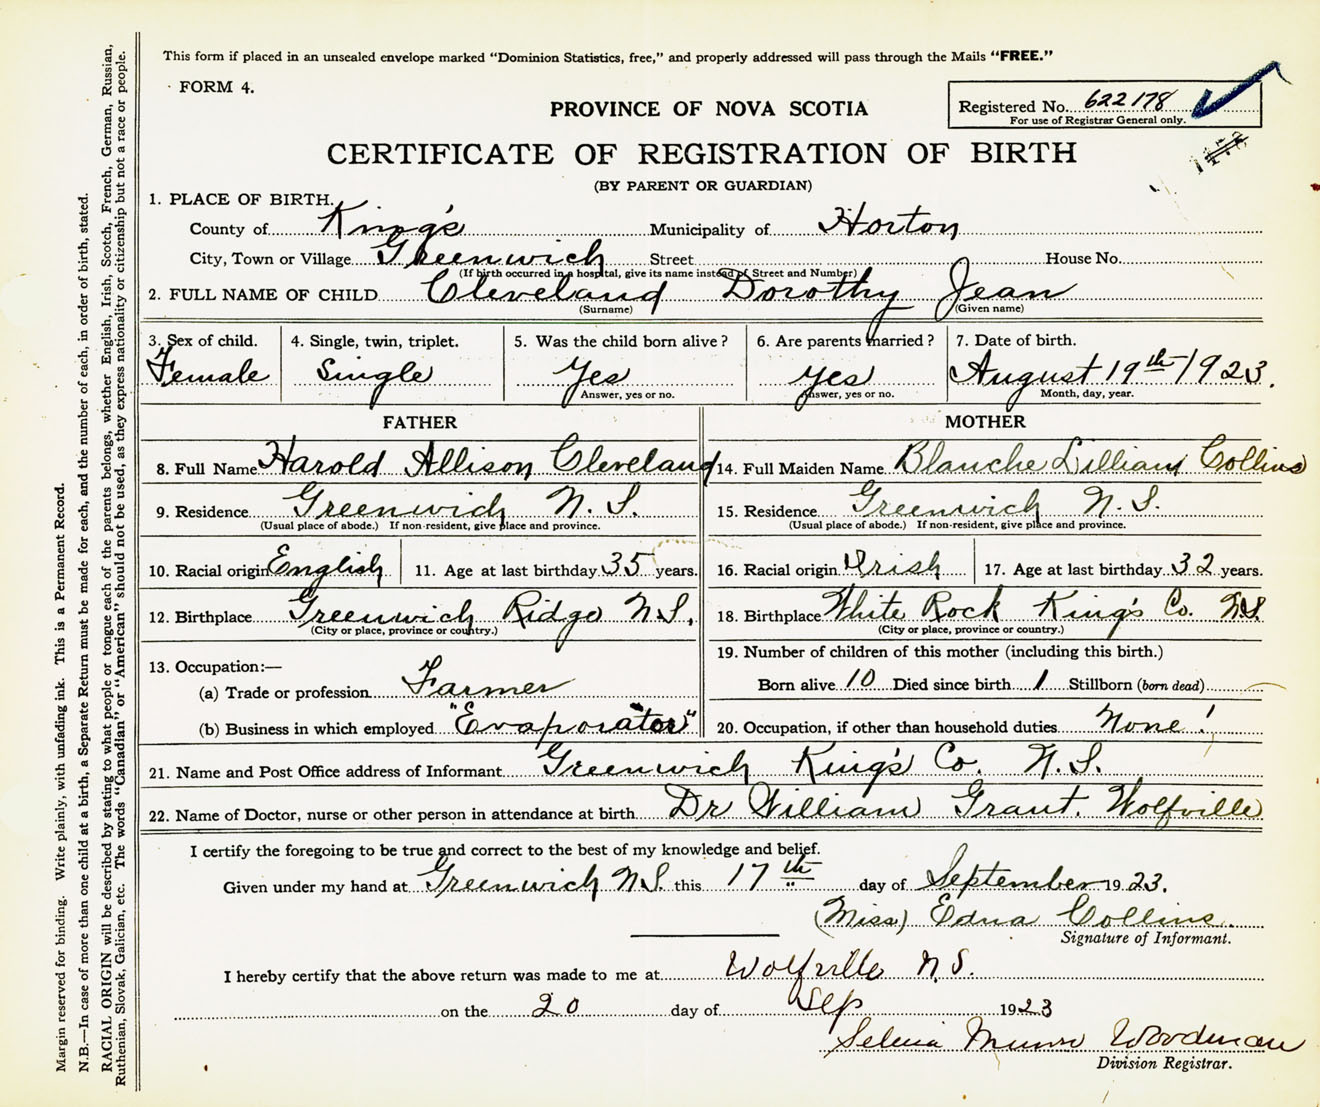 This form if placed in an unsealed envelope marked “Dominion Statistics, free,” and properly addressed will pass through the Mails “FREE.”
FORM 4.
Registered No. 622178
For use of Registrar General only.
PROVINCE OF NOVA SCOTIA
CERTIFICATE OF REGISTRATION OF BIRTH
(BY PARENT OR GUARDIAN)
1. PLACE OF BIRTH.
County of King's Municipality of Horton
City, Town or Village Greenwich Street House No.
(If birth occurred in a hospital, give its name instead of Street and Number)
2. FULL NAME OF CHILD Cleveland Dorothy Jean
(Surname) (Given name)
3. Sex of child. 4. Single, twin, triplet. 5. Was the child born alive? 6. Are parents married? 7. Date of birth.
Female Single Yes Yes August 19th 1923.
Answer, yes or no. Answer, yes or no. Month, day, year.
FATHER MOTHER
8. Full Name Harold Allison Cleveland 14. Full Maiden Name Blanche Lillian Collins
9. Residence Greenwich N.S. 15. Residence Greenwich N.S.
(Usual place of abode.) If non-resident, give place and province. (Usual place of abode.) If non-resident, give place and province.
10. Racial origin English 11. Age at last birthday 35 years. 16. Racial origin Irish 17. Age at last birthday 32 years.
12. Birthplace Greenwich Ridge N.S. 18. Birthplace White Rock King's Co. N.S.
(City or place, province or country.) (City or place, province or country.)
13. Occupation:—
(a) Trade or profession Farmer
(b) Business in which employed "Evaporator"
19. Number of children of this mother (including this birth.)
Born alive 10 Died since birth 1 Stillborn (born dead)
20. Occupation, if other than household duties None!
21. Name and Post Office address of Informant Greenwich King's Co. N.S.
22. Name of Doctor, nurse or other person in attendance at birth Dr William Grant. Wolfville
I certify the foregoing to be true and correct to the best of my knowledge and belief.
Given under my hand at Greenwich N.S. this 17th day of September 1923.
(Miss) Edna Collins
Signature of Informant.
I hereby certify that the above return was made to me at Wolfville N.S.
on the 20 day of Sep 1923
Selina Munro Woodman
Division Registrar.
Margin reserved for binding. Write plainly, with unfading ink. This is a Permanent Record.
N.B.—In case of more than one child at a birth, a Separate Return must be made for each, and the number of each, in order of birth, stated.
RACIAL ORIGIN will be described by stating to what people or tongue each of the parents belongs, whether English, Irish, Scotch, French, German, Russian,
Ruthenian, Slovak, Galician, etc. The words “Canadian” or “American” should not be used, as they express nationality or citizenship but not a race or people.